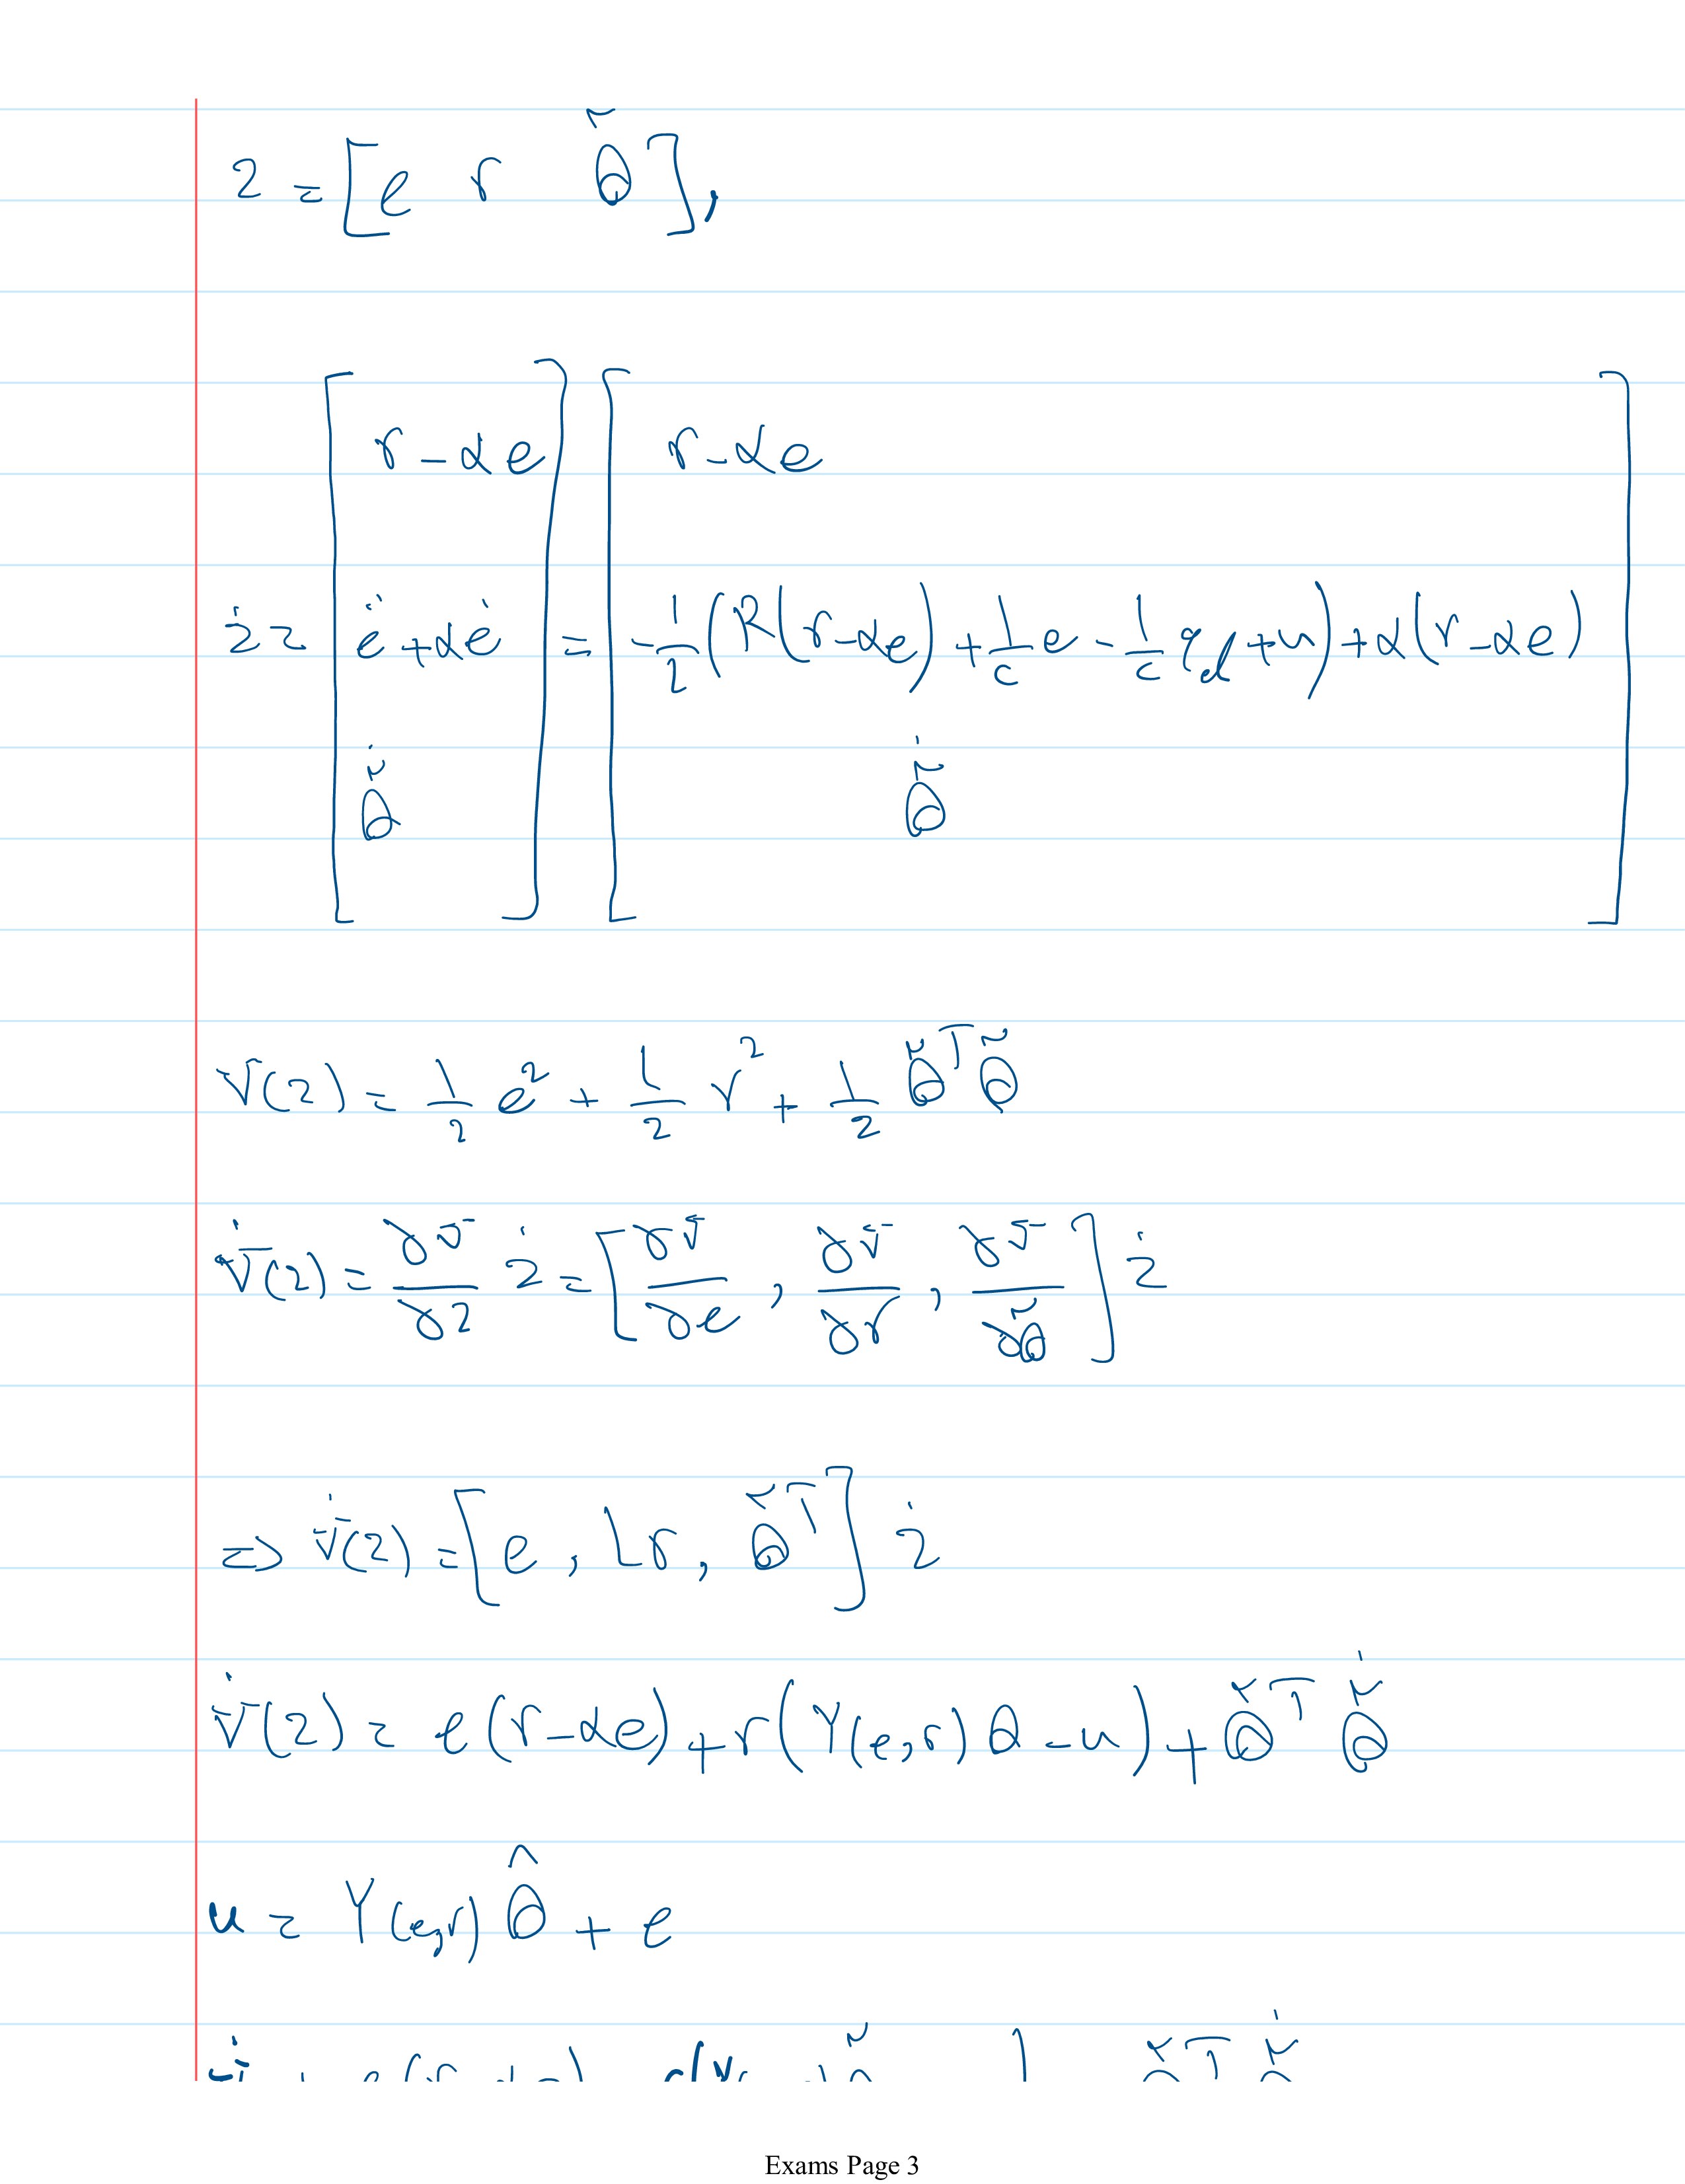 z = [e r θ̃],
ż = [r - αe ; ë + αė ; θ̃̇] = [r - αe ; -1/L (R(r - αe) + 1/c e - 1/c q_d + u) + α(r - αe) ; θ̃̇]
V(z) = 1/2 e² + L/2 r² + 1/2 θ̃ᵀ θ̃
V̇(z) = ∂V/∂z ż = [∂V/∂e , ∂V/∂r , ∂V/∂θ̃] ż
=> V̇(z) = [e , Lr , θ̃ᵀ] ż
V̇(z) = e(r - αe) + r(Y(e,r)θ - u) + θ̃ᵀ θ̃̇
u = Y(e,r) θ̂ + e
Exams Page 3